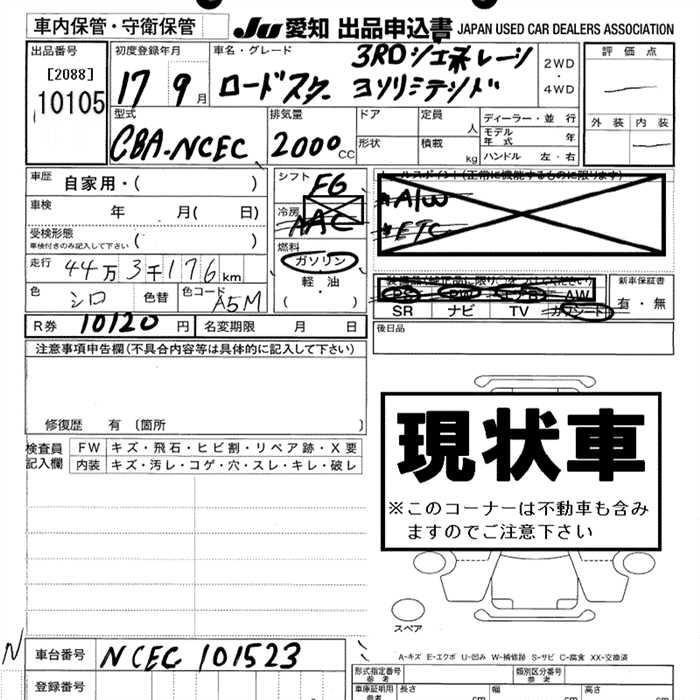 車内保管・守衛保管 JU 愛知 出品申込書 JAPAN USED CAR DEALERS ASSOCIATION
出品番号 初度登録年月 車名・グレード 評価点
[2088] 17 9月 ロードスター 3RDジェネレーション 2WD・4WD
10105 ヨソリミテッド 外装 内装
型式 排気量 ドア 定員 人 ディーラー・並行
CBA-NCEC 2000cc 形状 積載 kg モデル年式 年
ハンドル 左・右
車歴 自家用・( ) シフト F6 セールスポイント(正常に機能するものに限ります)
車検 年 月( 日) 冷房 AAC A/W
受検形態 車検付きのみ記入して下さい ( ) ETC
燃料 ガソリン
走行 44万3千176km 軽・油
色 シロ 色替 色コード A5M ( )
PS PW エアB AW 新車保証書
SR ナビ TV カワシート 有・無
R券 10120円 名変期限 月 日 後日品
注意事項申告欄(不具合内容等は具体的に記入して下さい)
修復歴 有〔箇所 〕
検査員記入欄 FW キズ・飛石・ヒビ割・リペア跡・X要
内装 キズ・汚レ・コゲ・穴・スレ・キレ・破レ
現状車
※このコーナーは不動車も含み
ますのでご注意下さい
スペア
A-キズ E-エクボ U-凹み W-補修跡 S-サビ C-腐食 XX-交換済
N 車台番号 NCEC 101523
登録番号
形式指定番号 参考 類別区分番号 参考
車庫証明用 参考 長さ cm 幅 cm 高さ cm